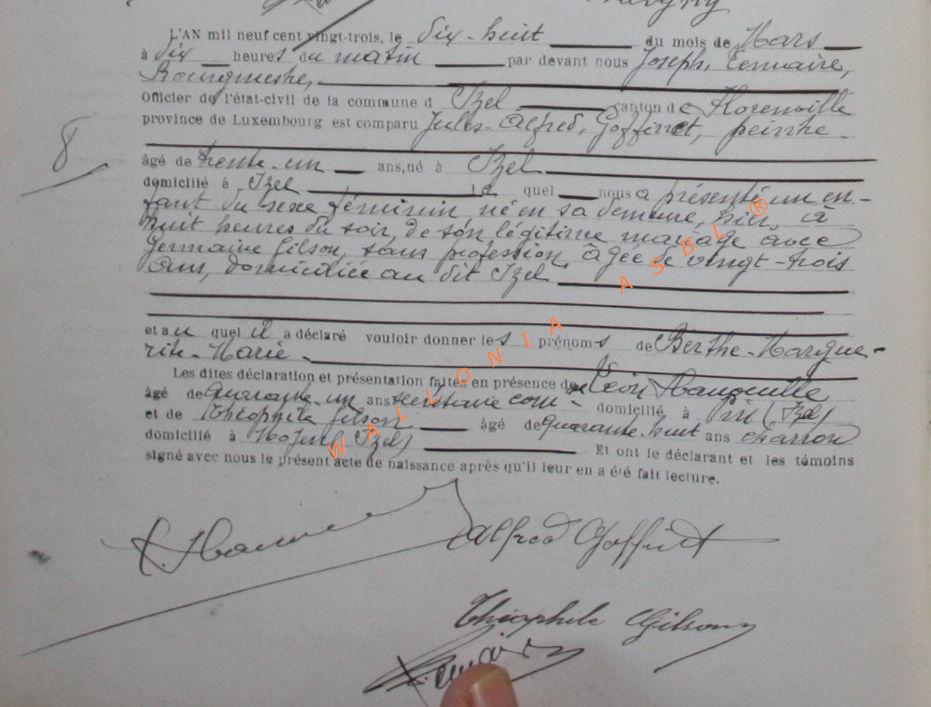 L'AN mil neuf cent vingt-trois, le dix-huit du mois de Mars
à dix heures du matin par devant nous Joseph, Lemaire,
Bourgmestre,
Officier de l'état-civil de la commune d Izel canton de Florenville
province de Luxembourg est comparu Jules-Alfred, Goffinet, peintre
8
âgé de trente-un ans, né à Izel
domicilié à Izel le quel nous a présenté un en-
fant du sexe féminin né en sa demeure, hier, à
huit heures du soir, de son légitime mariage avec
Germaine Gilson, sans profession, âgée de vingt-trois
ans, domiciliée au dit Izel
et au quel il a déclaré vouloir donner les prénoms de Berthe-Margue-
rite-Marie-
Les dites déclaration et présentation faites en présence de Léon
âgé de quarante-un ans secrétaire com- domicilié à Pin (Izel)
et de Théophile Gilson âgé de quarante-huit ans charron
domicilié à Moyen (Izel) Et ont le déclarant et les témoins
signé avec nous le présent acte de naissance après qu'il leur en a été fait lecture.
Alfred Goffinet
Théophile Gilson
Lemaire
WALLONIA ASBL ®